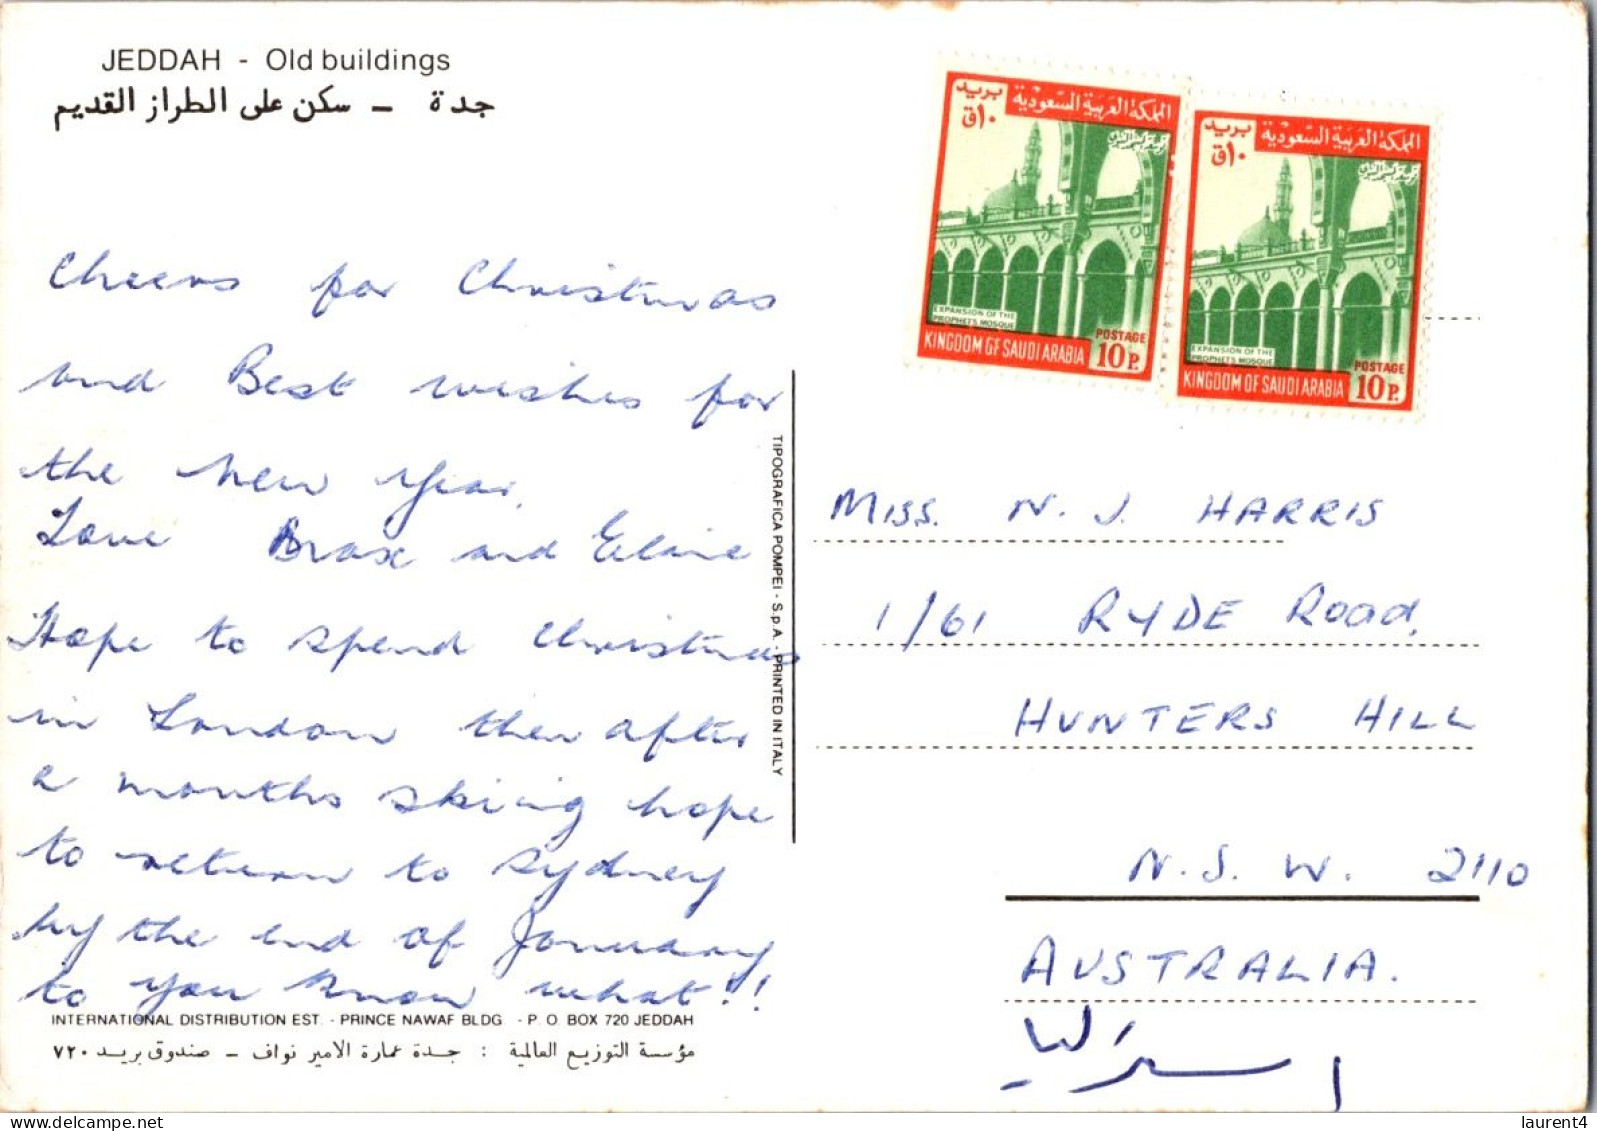 JEDDAH - Old buildings
جدة – سكن على الطراز القديم
Cheers for Christmas
and Best wishes for
the New Year.
Love Brax and Elaine
Hope to spend Christmas
in London then after
a months skiing hope
to return to Sydney
by the end of January
to you know what!!
INTERNATIONAL DISTRIBUTION EST. - PRINCE NAWAF BLDG. - P. O. BOX 720 JEDDAH
مؤسسة التوزيع العالمية : جدة عمارة الامير نواف – صندوق بريد ٧٢٠
TIPOGRAFICA POMPEI - S.p.A. - PRINTED IN ITALY
بريد المملكة العربية السعودية
١٠ق
EXPANSION OF THE
PROPHET'S MOSQUE
POSTAGE
KINGDOM OF SAUDI ARABIA 10 P.
بريد المملكة العربية السعودية
١٠ق
EXPANSION OF THE
PROPHET'S MOSQUE
POSTAGE
KINGDOM OF SAUDI ARABIA 10 P.
MISS. N. J. HARRIS
1/61 RYDE ROAD,
HUNTERS HILL
N.S.W. 2110
AUSTRALIA.
استراليا
laurent4